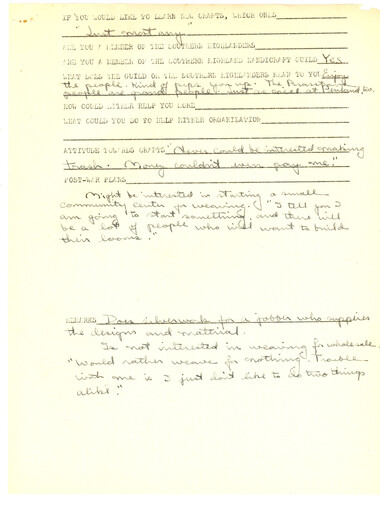 IF YOU WOULD LIKE TO LEARN NEW CRAFTS, WHICH ONES
"Just most any"
ARE YOU A MEMBER OF THE SOUTHERN HIGHLANDERS
ARE YOU A MEMBER OF THE SOUTHERN HIGHLAND HANDICRAFT GUILD Yes
WHAT DOES THE GUILD OR THE SOUTHERN HIGHLANDERS MEAN TO YOU Enjoy
the people. Kind of peps you up. The
people are grand people - just as good at Penland, too.
HOW COULD EITHER HELP YOU MORE
WHAT COULD YOU DO TO HELP EITHER ORGANIZATION
ATTITUDE TOWARDS CRAFTS "Never could be interested making
trash. Money couldn't even pay me."
POST-WAR PLANS
Might be interested in starting a small
community center for weaving. "I tell you I
am going to start something, and there will
be a lot of people who will want to build
their looms."
REMARKS Does silverwork for a jobber who supplies
the designs and mattrial.
Is not interested in weaving for wholesale.
"Would rather weave for nothing. Trouble
with me is I just don't like to do two things
alike."